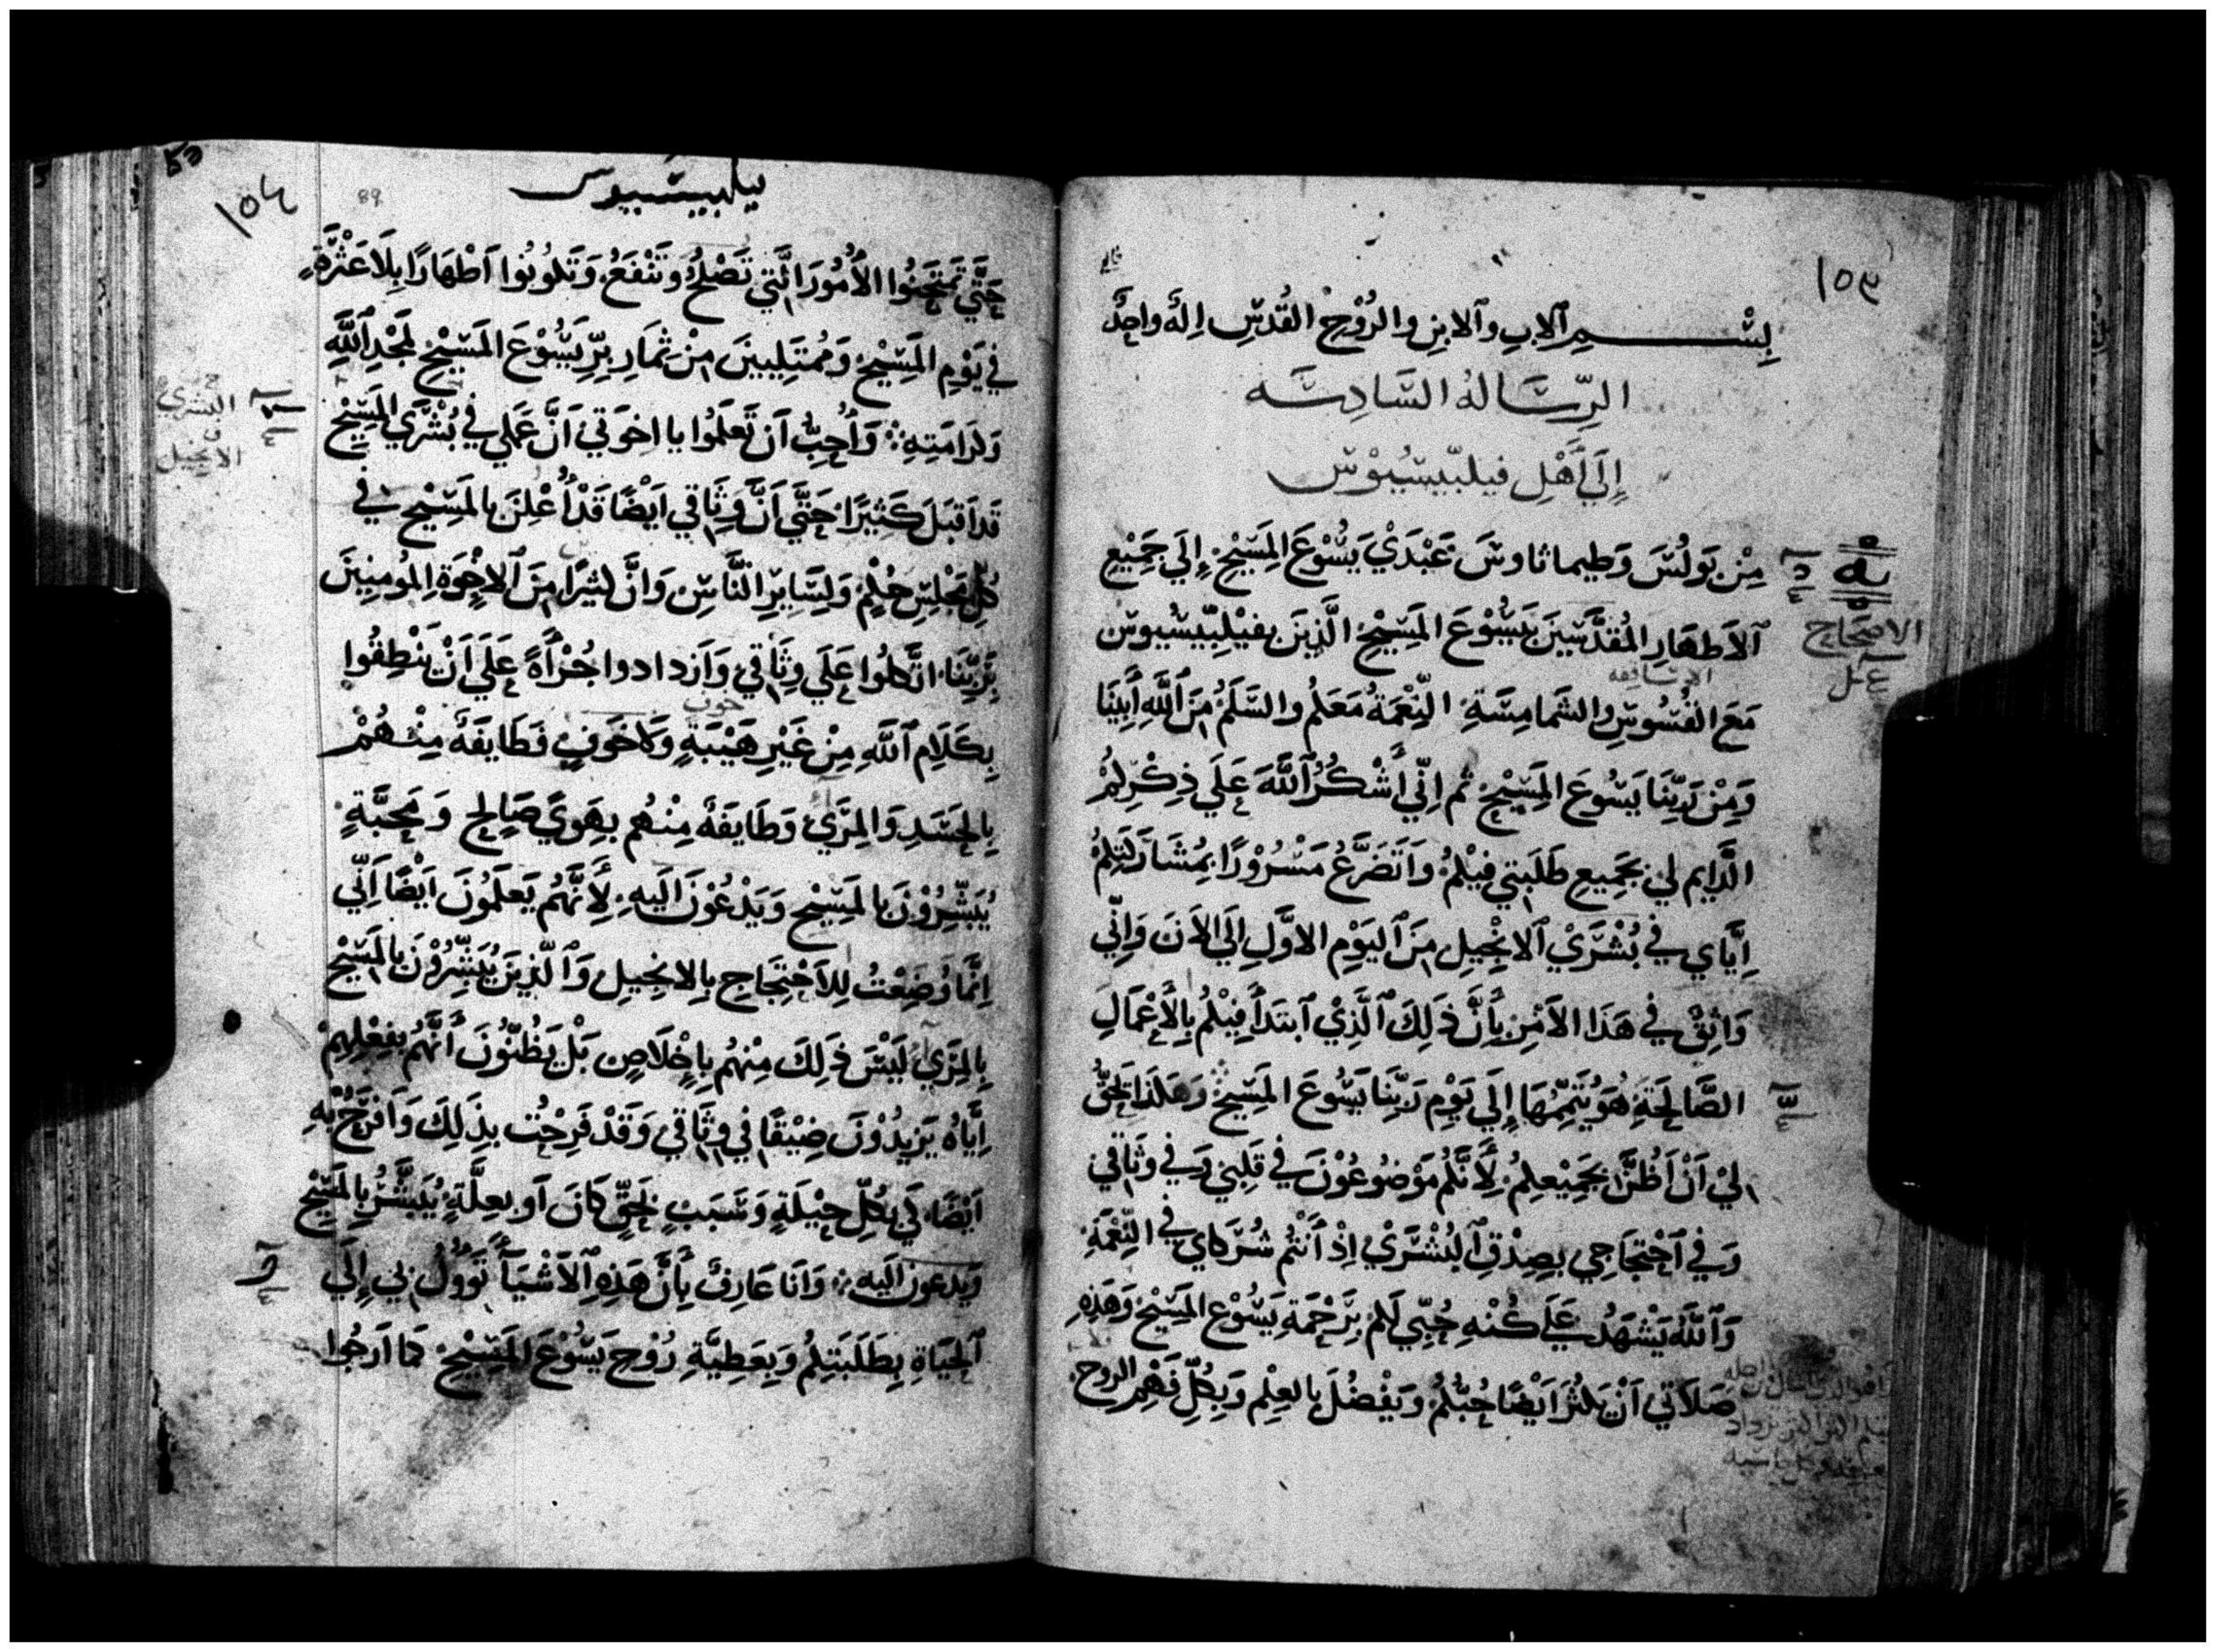 ١٥٣
بِسْمِ ٱلابِ وٱلابنِ والرُوْحِ القُدسِ اِلهٌ واحِدٌ
الرِسَاله السَادِسَه
إِلَي أَهْلِ فيلبّيسيُوْس
مِنْ بَولُسَ وَطيماثاوسَ عَبْدَيْ يَسُوْعَ المَسِيْحِ إِلَي جَمِيْعِ
الاصحاح
ٱلاَطهَارِ المُقدَّسِيَن بَيَسُوْعَ المَسِيْحِ الَّذِينَ بفيْلِبّيسْيوس
الاساقفه
مَعَ القُسُوسِ والشَمامِسَةِ النِّعْمَةُ مَعَكُم والسَّلَمُ مِنَ ٱللَّهِ اَبِينَا
وَمِنْ رَبِّنَا يَسُوعَ المَسِيْحِ ثم اِنّي أَشْكُرُ ٱللَّهَ عَلَي ذِكْرِكُمْ
الدَّايم لي بجَمِيعِ طَلَبَتي فِيْكُمْ وَاَتَضَرَّعُ مَسْرُوْرًا بمُشَارَكَتِكُمْ
اِيَّاي في بُشْرَيْ ٱلانْجِيلِ مِنَ ٱليَوْمِ الاوَّلِ اِلَي الاَنَ وَاِنِّي
وَاثِقٌ في هَذَا الاَمْرِ بِأَنَّ ذَلِكَ ٱلَّذِيْ ٱبتَدَأَ فِيْكُمْ بِالأَعْمَالِ
الصَّالِحَةِ هُوَ يُتَمِّمُهَا إِلَي يَوْمِ رَبِّنَا يَسُوعَ المَسِيحِ وَهَكَذَا يَحِقُّ
لِيْ اَنْ اَظُنَّ بجَمِيْعِكُمْ لِأَنَّكُمْ مَوْضُوعُوْنَ في قَلبِيْ وَفي وثَاقي
وَفي ٱحْتجَاجي بصِدْقِ ٱلبُشْرَيْ اِذْ أَنْتُم شُرَكاي في النِّعْمَةِ
وَٱللَّهُ يَشْهَدُ عَلَي كُنْهِ حُبّي لَكُمْ بِرَحْمَةِ يَسُوْعَ المَسِيْحِ وَهَذِهِ
صَلَاتي اَنْ يَكثُرَ اَيْضًا حُبّكُمْ وَيَفْضُلَ بِالعِلْمِ وَبِكُلِّ فَهْمِ الروح
١٥٤
89
فيلبيسيوس
حَتَّي تَمتَحِنُوا الأُمُورَ الَّتي تَصْلُحُ وَتَنْفَعُ وَتَكُونُوا اَطْهَارًا بِلَا عَثْرَةٍ
في يَوْمِ المَسِيْحِ وَمُمْتَلِيينَ مِنْ ثِمَارِ بِرِّ يَسُوْعَ المَسِيْحِ لمَجْدِ ٱللَّهِ
وَكَرَامَتِهِ وَأُحِبُّ اَن تَعلَمُوا يا اخوَتي اَنَّ عَمَلي في بُشْرَي المَسِيْحِ
البشري
الانجيل
قَد اَقبَلَ كَثِيرًا حَتَّي اَنَّ وِثَاقي اَيْضًا قَدْ أُعْلِنَ بِالمَسِيْحِ في
كُلِّ مَجْلِسِ حُكْمٍ وَلِسَايرِ النَّاسِ وَانَّ كَثيرًا مِنَ ٱلاخْوَةِ المُومِنِينَ
بِرَبِّنَا اتَّكَلُوا عَلَي وِثَاقي وَاَزدادوا جُرْأَةً عَلَي اَنْ يَنْطِقُوا
بِكَلَامِ ٱللَّهِ مِنْ غَيْرِ هَيْبَةٍ وَلا خَوفٍ فَطَايفَةٌ مِنْهُمْ
بِالحَسَدِ وَالمِرَيْ وَطَايفَةٌ مِنْهُم بِهَوَيً صَالِحٍ وَمحَبَّةٍ
يُبَشِّرُوْنَ بالمَسِيْحِ وَيَدْعُوْنَ اِلَيهِ لِأَنَّهُم يَعلَمُونَ اَيْضًا اَنِّي
اِنَّمَا وُضِعْتُ لِلاَحْتِجَاجِ بِالانجِيلِ وَٱلَّذِينَ يُبَشِّرُوْنَ بِالمَسِيْحِ
بِالمِرَي لَيْسَ ذَلِكَ مِنْهُم بِاِخْلَاصٍ بَلْ يَظُنُّونَ أَنَّهُم بفِعْلِهِمْ
اِيَّاهُ يَزيدُوْنَ ضِيْقًا في وِثَاقي وَقَدْ فَرِحْتُ بذَلِكَ وَاَفرَحُ بِهِ
اَيْضًا كَي بكُلِّ حِيْلَةٍ وَسَبَبٍ بَحَقٍّ كَانَ اَو بعِلَّةٍ يُبَشَّرُ بِالمَسِيْحِ
وَيدعون الَيه وَاَنَا عَارِفٌ بِأَنَّ هَذِهِ ٱلاَشْيَاَ تَوُولُ بي إِلَي
ٱلحَيَاةِ بِطَلَبَتِكُمْ وَبِعَطِيَّةِ رُوْحِ يَسُوْعَ المَسِيْحِ كَما اَرجُوا